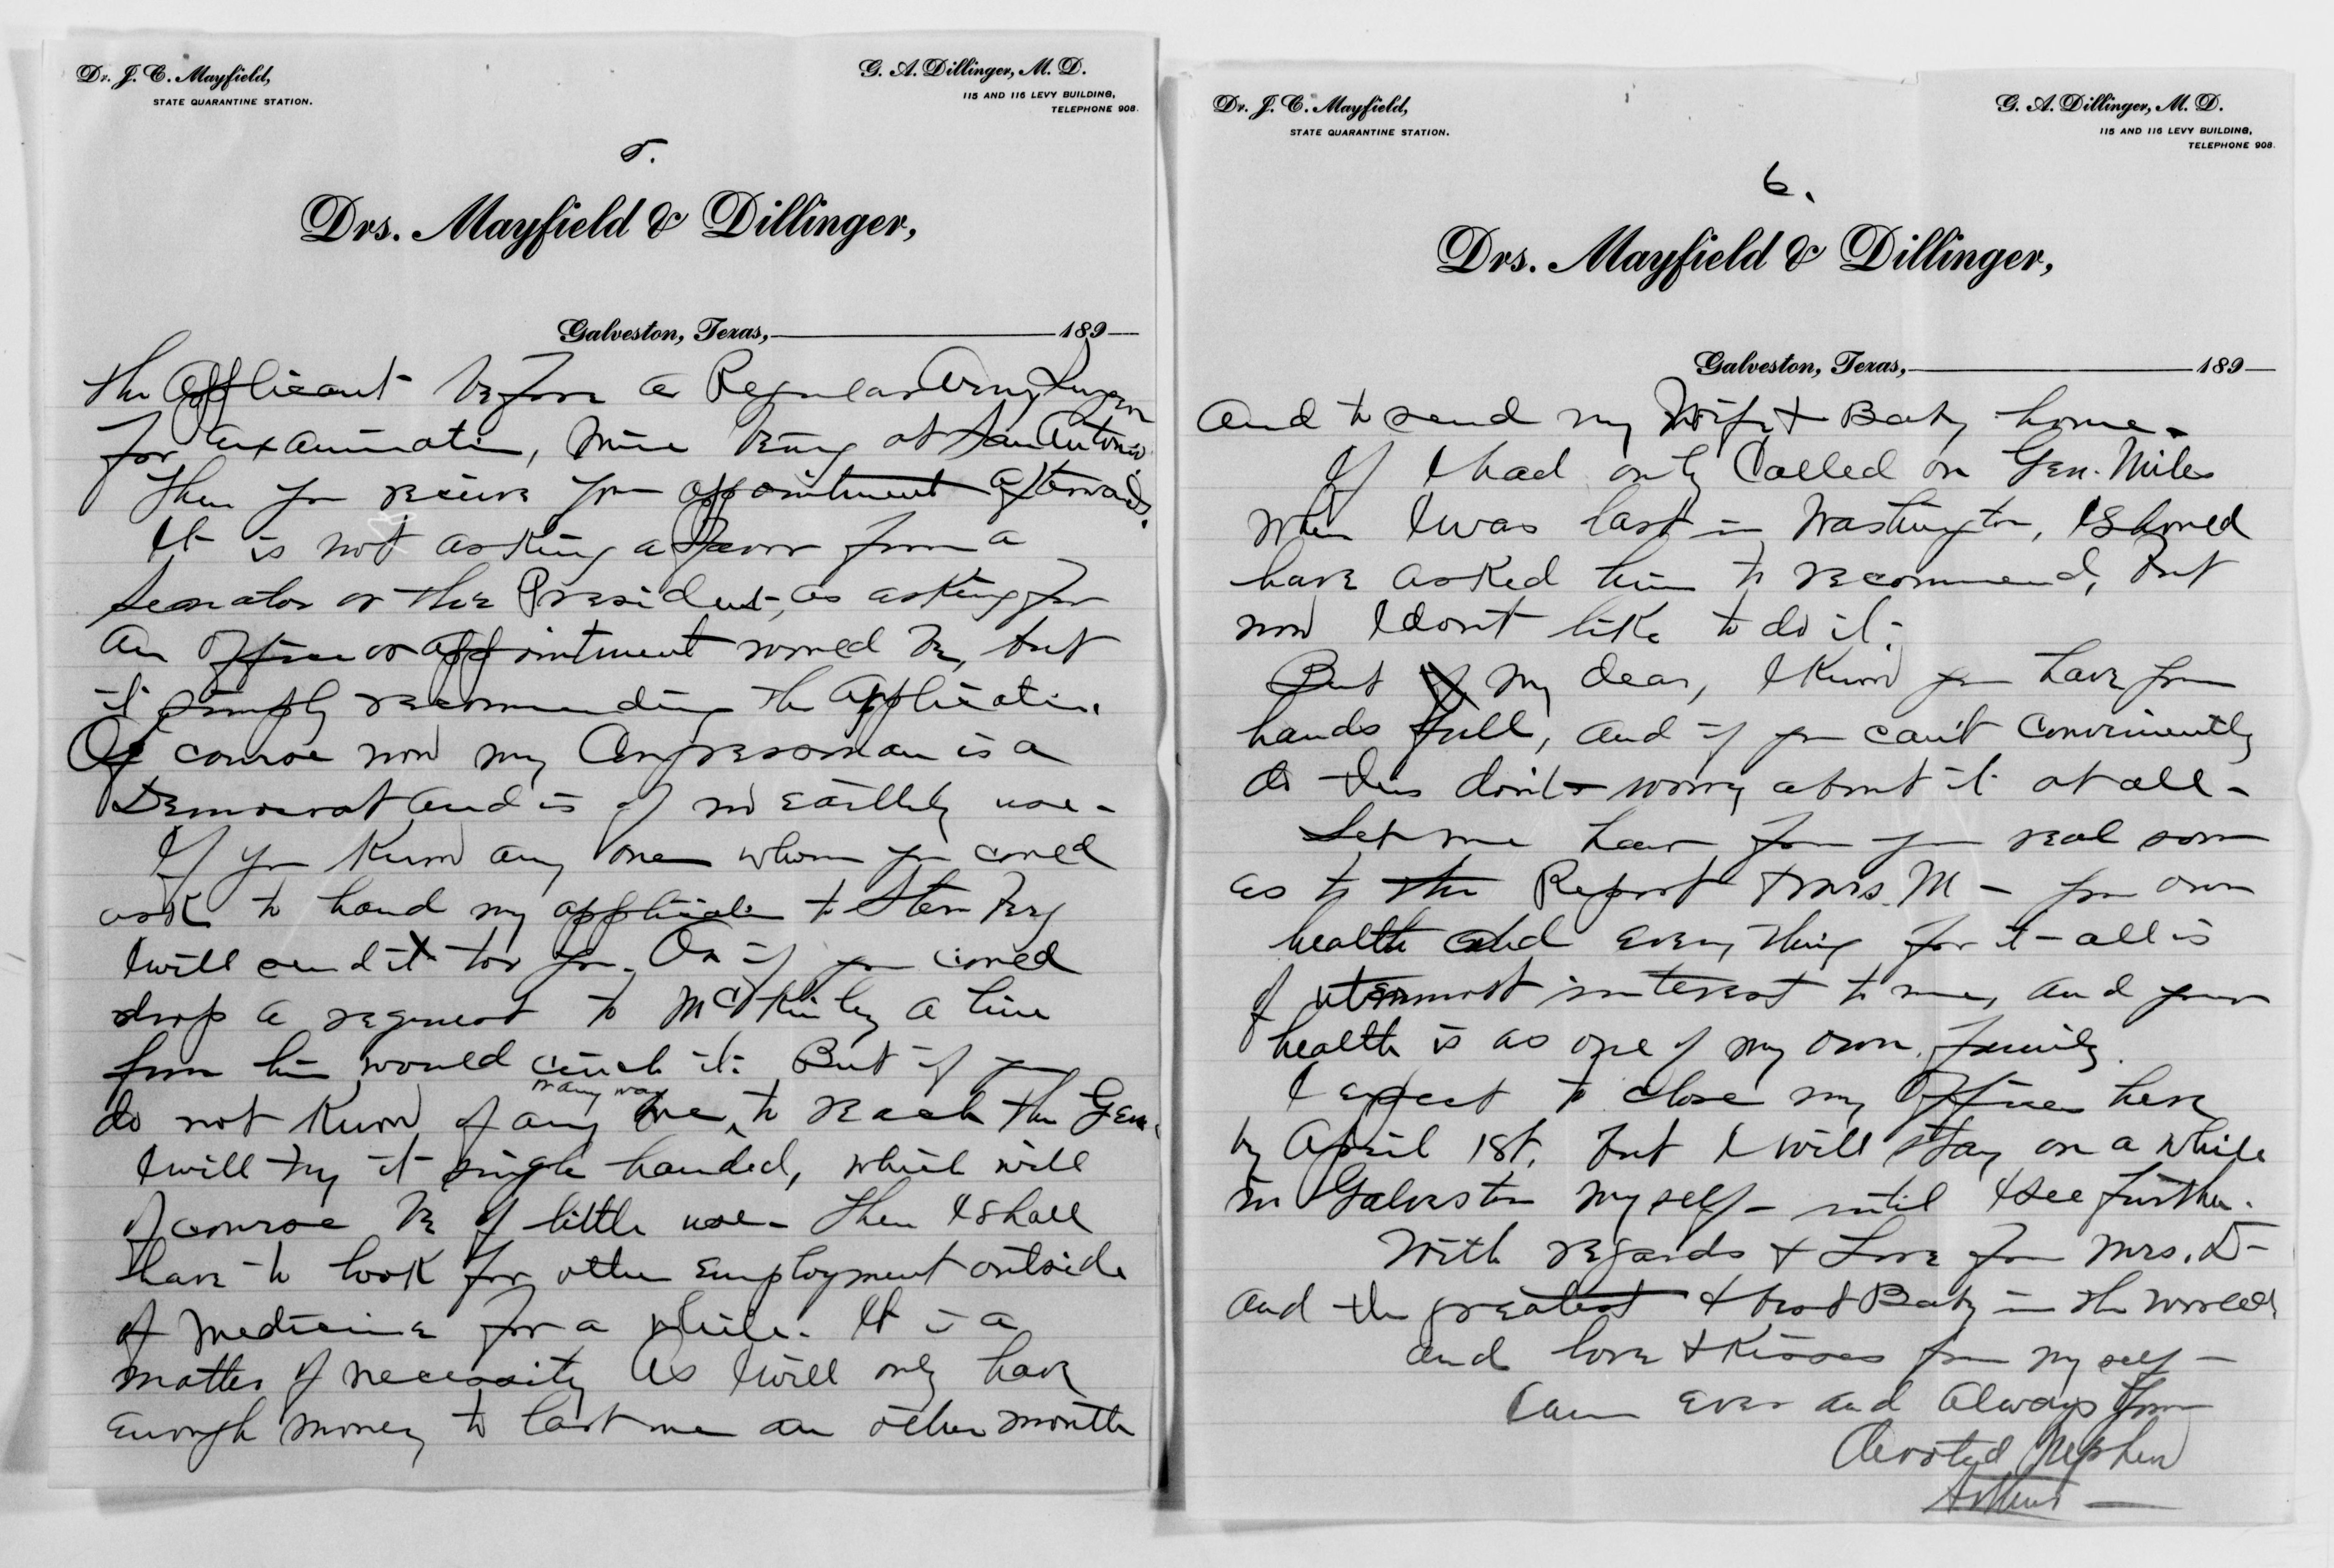 Dr. J. C. Mayfield,
STATE QUARANTINE STATION.
G. A. Dillinger, M. D.
115 AND 116 LEVY BUILDING,
TELEPHONE 908.
5.
Drs. Mayfield & Dillinger,
Galveston, Texas, 189
the applicant before a Regular Army Surgeon
for examination, mine being at San Antonio.
Then you receive your appointment afterwards.
It is not asking a favor from a
Senator or the President, as asking for
an office or appointment would be, but
it simply recommending the application.
Of course now my Congressman is a
Democrat and is of no earthly use -
If you know any one whom you could
ask to hand my application to Sternberg
I will send it to you. Or if you could
drop a request to McKinley a line
from him would cinch it. But if you
do not know of any one or any way to reach the Gen.
I will try it single handed, which will
of course be of little use - Then I shall
have to look for other employment outside
of medicine for a while. It is a
matter of necessity as I will only have
enough money to last me an other month
Dr. J. C. Mayfield,
STATE QUARANTINE STATION.
G. A. Dillinger, M. D.
115 AND 116 LEVY BUILDING,
TELEPHONE 908.
6.
Drs. Mayfield & Dillinger,
Galveston, Texas, 189
and to send my Wife & Baby home -
If I had only called on Gen. Miles
when I was last in Washington, I should
have asked him to recommend, but
now I dont like to do it.
But my dear, I know you have your
hands full, and if you can't conveniently
do this don't worry about it at all -
Let me hear from you real soon
as to the Report & Mrs. M - your own
health and every thing for it all is
of utmost interest to me, and your
health is as one of my own family.
I expect to close my offices here
by April 1st, but I will stay on a while
in Galveston myself - until I see further.
With regards & Love from Mrs. D -
and the greatest & best Baby in the world,
and love & Kisses from myself -
I am ever and always your
devoted Nephew
Arthur